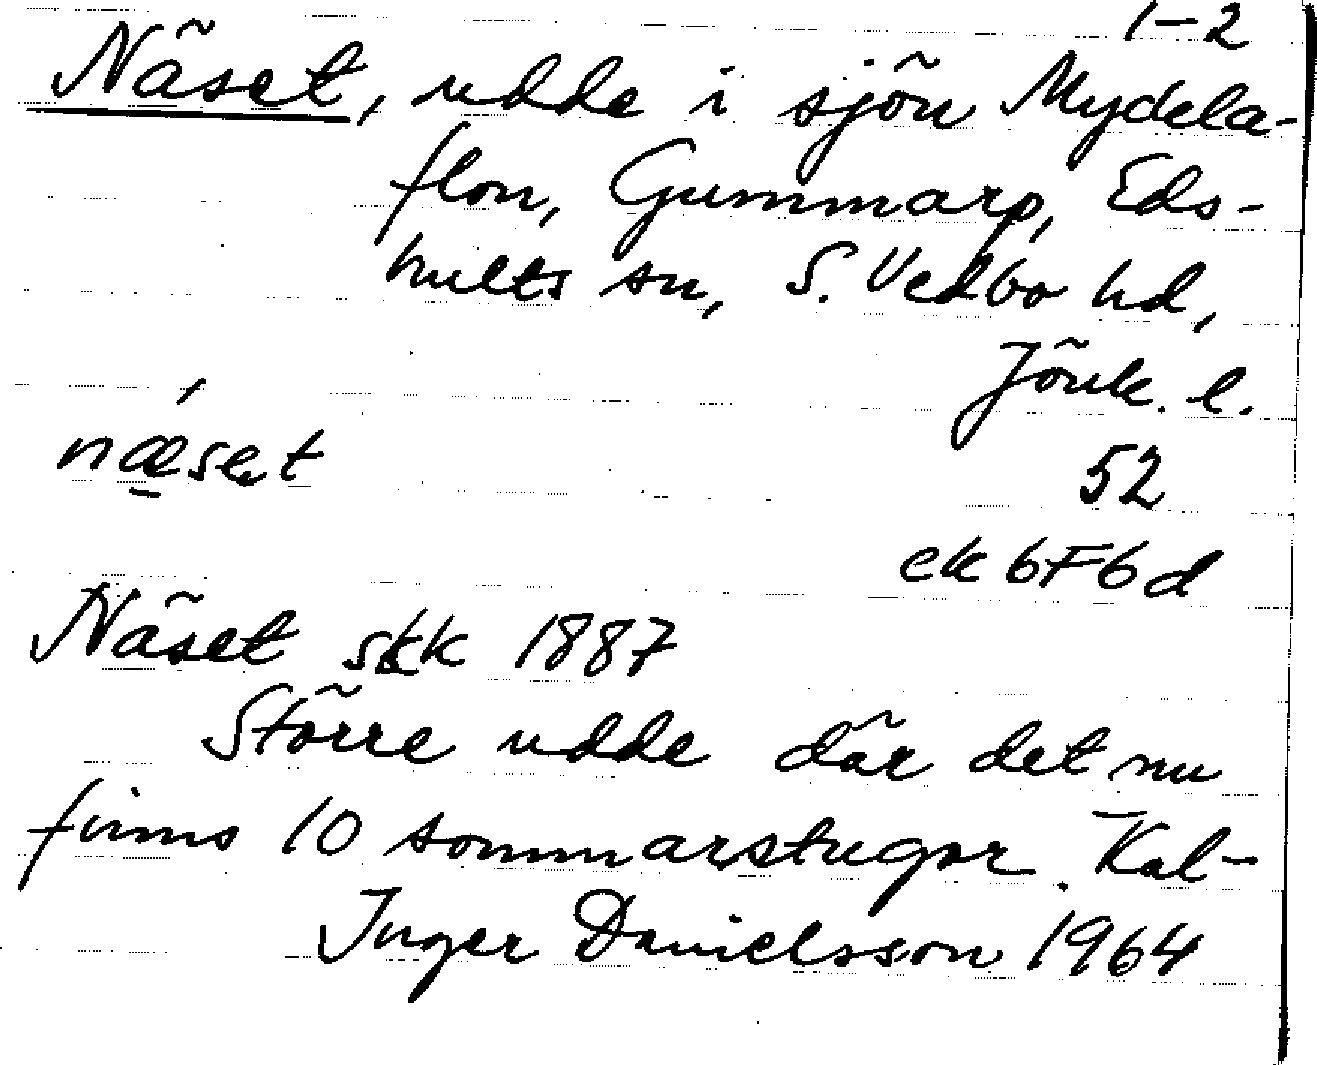 1-2
Näset, udde i sjön Mydela-
flon, Gummarp, Eds-
hults sn, S. Vedbo hd,
Jönk. l.
nǽ̠set
52
ek 6F6d
Näset skk 1887
Större udde där det nu
finns 10 sommarstugor. Kal-
Inger Danielsson 1964